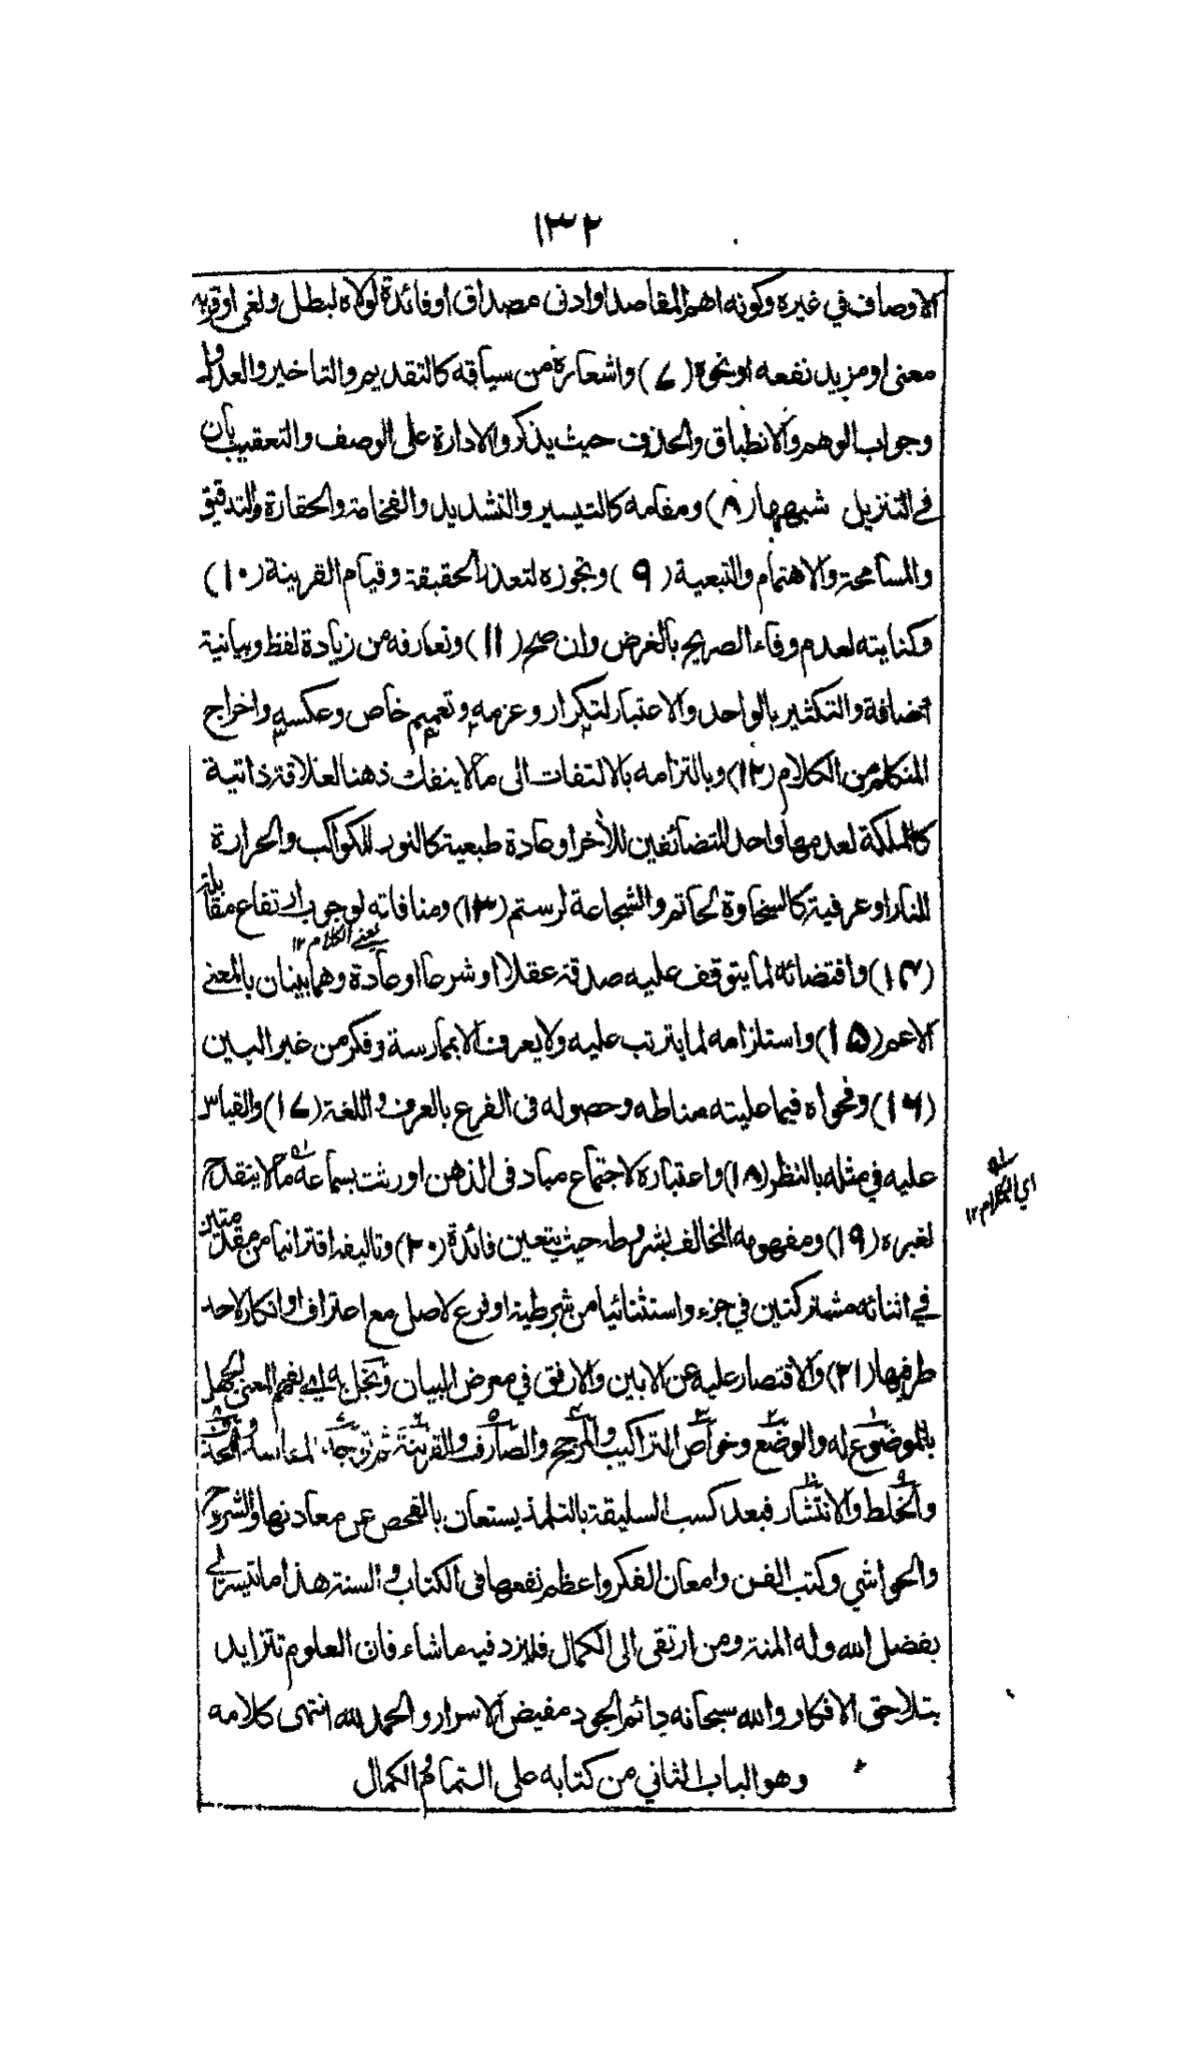 ١٣٢
الاوصاف في غيره وكونه اهم المقاصد او ادنى مصداق او فائدة لولاه لبطل ولغى او قربه
معنى او مزيد نفعه او نحوه (٧) واشعاره من سياقه كالتقديم والتاخير والعدول
وجواب الوهم والانطباق والحذف حيث يذكر والادارة على الوصف والتعقيب بان
في التنزيل شبهها (٨) ومقامه كالتيسير والتشديد والفخامة والحقارة والتدقيق
والمسامحة والاهتمام والتبعية (٩) وتجوزه لتعذر الحقيقة وقيام القرينة (١٠)
وكنايته لعدم وفاء الصريح بالغرض وان صح (١١) وتعارفه من زيادة لفظ وبيانية
اضافة والتكثير بالواحد والاعتبار لتكرار وعزمه وتعميم خاص وعكسه واخراج
المتكلم من الكلام (١٢) وبالتزامه بالالتفات الى ما لا ينفك ذهنا لعلاقة ذاتية
كالملكة لعدمها واحد المتضائفين للأخر او عادة طبعية كالنور للكواكب والحرارة
للنار او عرفية كالسخاوة لحاتم والشجاعة لرستم (١٣) ومنافاته لوجوب ارتفاع مقابله
يعني الكلام ١٢
(١٤) واقتضائه لما يتوقف عليه صدقه عقلا او شرعا او عادة وهما بينان بالمعنى
الاعم (١٥) واستلزامه لما يترتب عليه ولا يعرف الا بممارسة وفكر من غير البين
(١٦) وفحواه فيما عليته مناطه وحصوله فى الفرع بالعرف واللغة (١٧) والقياس
عليه في مثله بالنظر (١٨) واعتباره لاجتماع مباد فى الذهن اورثت بسماعه ما لا ينقدح
اي الكلام ١٢
لغيره (١٩) ومفهومه المخالف بشروطه حيث يتعين فائدة (٢٠) وتاليفه اقترانيا من مقدمتين
في اثنائه مشتركتين في جزء واستثنائيا من شرطية او فرع لاصل مع اعتراف او انكار لاحد
طرفيها (٢١) والاقتصار عليه عن الابين والاوفق في معرض البيان ويخل به اي بفهم المعنى الجهل
بالموضوع له والوضع وخواص التراكيب والمرجح والصارف والقرينة ثم توجد
والخلط والانتشار فبعد كسب السليقة بالتلمذ يستعان بالفحص عن معادنها والشروح
والحواشي وكتب الفن وامعان الفكر واعظم نفعها فى الكتاب والسنة هذا ما تيسر لي
بفضل الله وله المنة ومن ارتقى الى الكمال فليزد فيه ما شاء فان العلوم تتزايد
بتلاحق الافكار والله سبحانه دائم الجود مفيض الاسرار والحمد لله انتهى كلامه
وهو الباب الثاني من كتابه على التمام والكمال